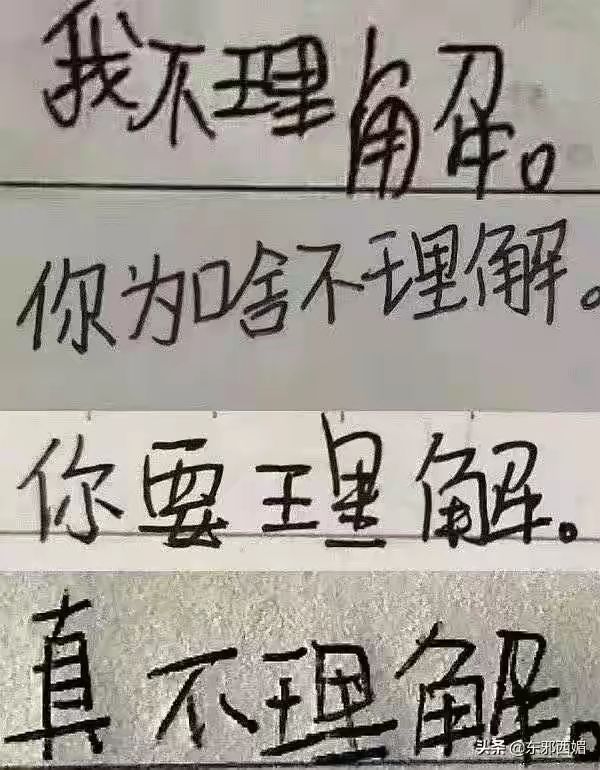 我不理解。
你为啥不理解。
你要理解。
真不理解。
头条 @东邪西媚